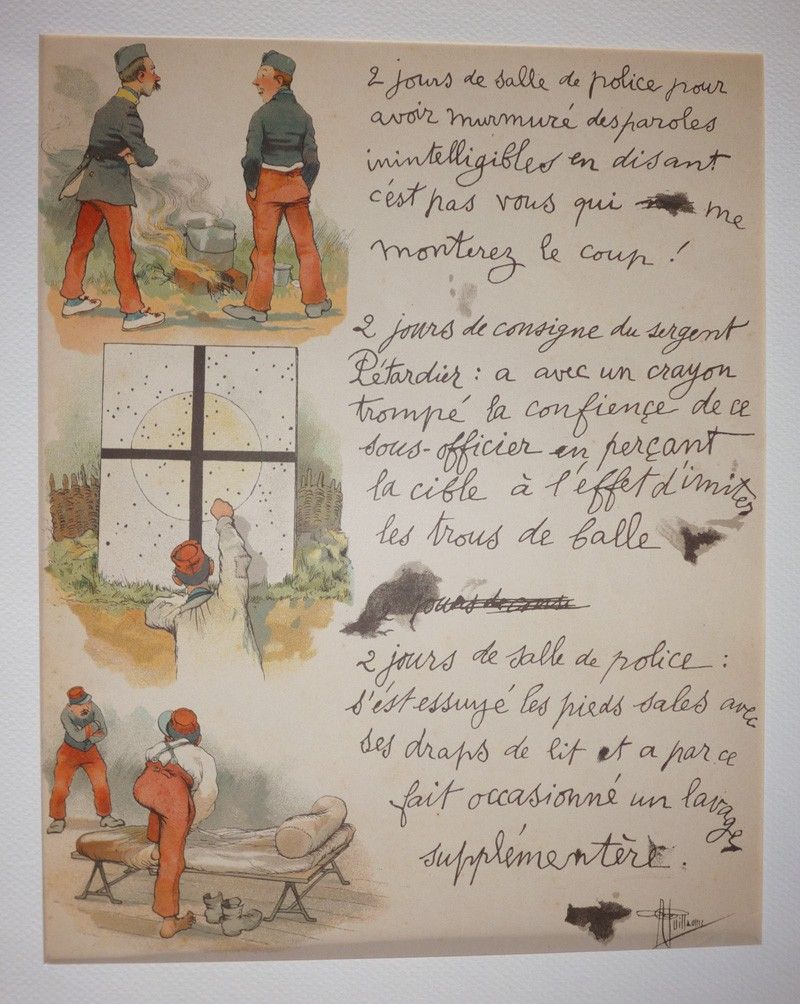 2 jours de salle de police pour
avoir murmuré des paroles
inintelligibles en disant
c'est pas vous qui me
monterez le coup !
2 jours de consigne du sergent
Pétardier : a avec un crayon
trompé la confiençe de ce
sous-officier en perçant
la cible à l'effet d'imiter
les trous de balle
jours de
2 jours de salle de police :
s'ést essuyé les pieds sales avec
ses draps de lit et a par ce
fait occasionné un lavage
supplémentère.
A Guillaume